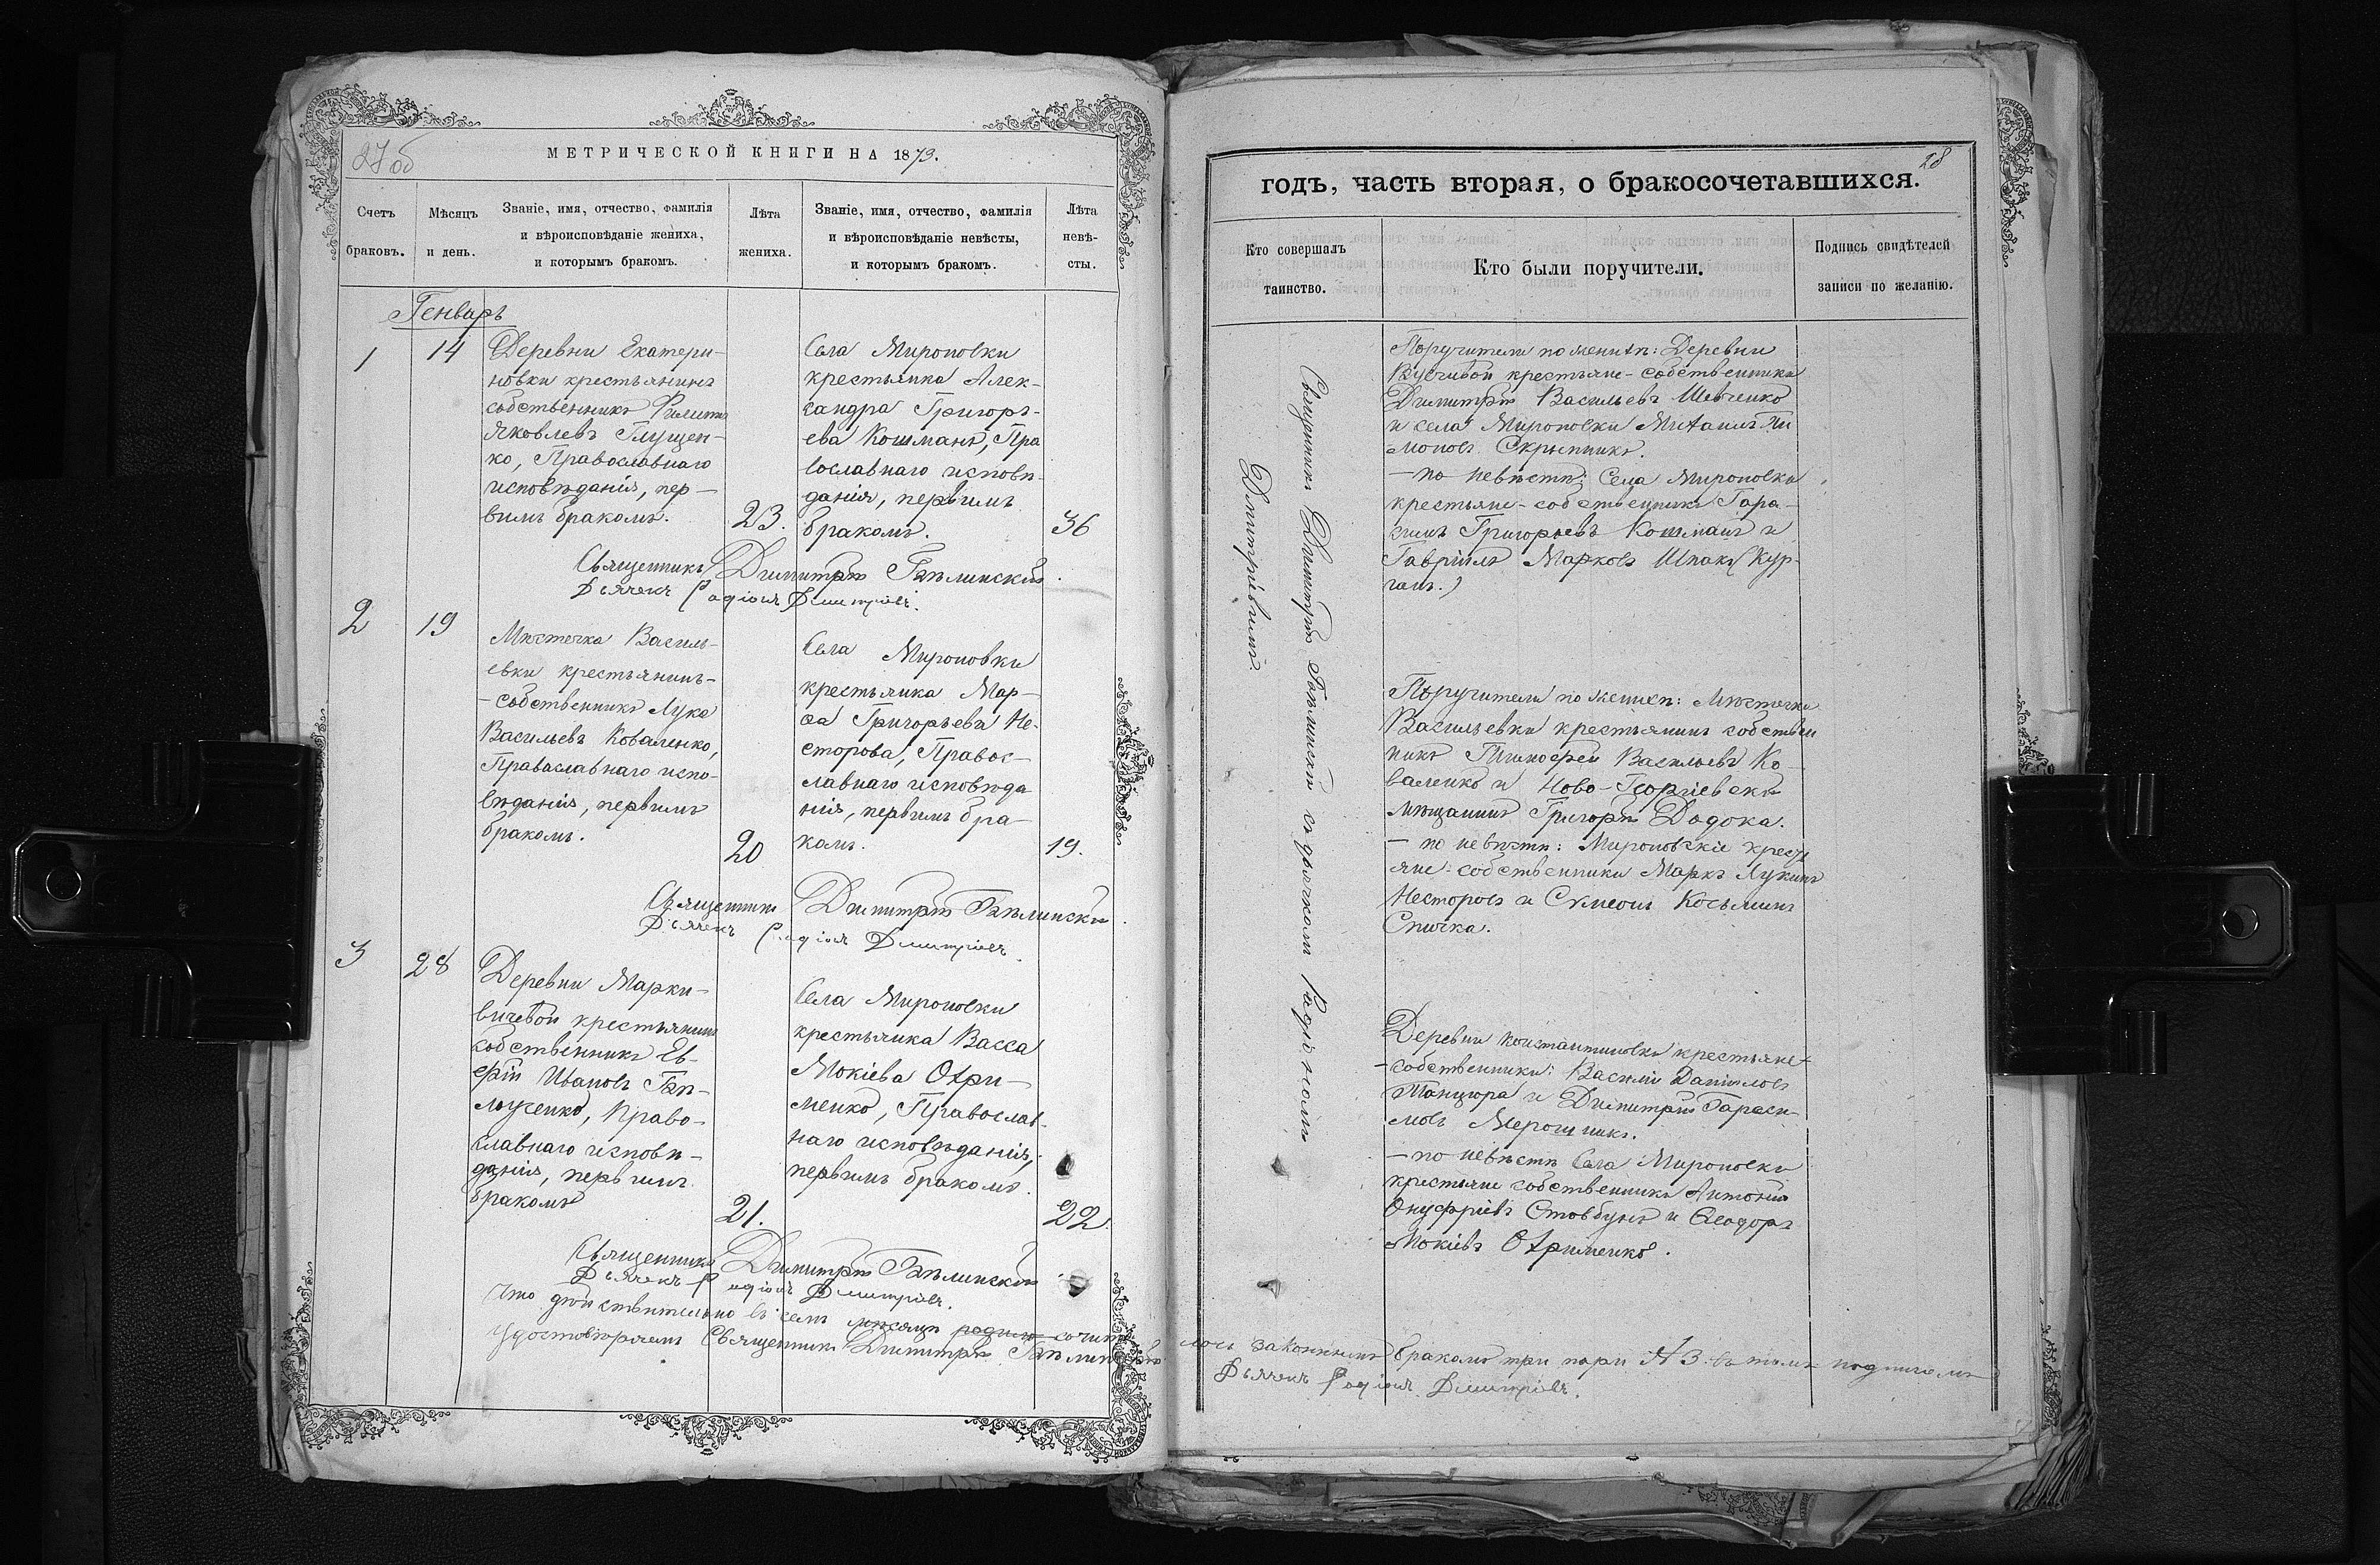 27 об
МЕТРИЧЕСКОЙ КНИГИ НА 1873.
Счетъ
браковъ.
Мѣсяцъ
и день.
Званіе, имя, отчество, фамилія
и вѣроисповѣданіе жениха,
и которымъ бракомъ.
Лѣта
жениха.
Званіе, имя, отчество, фамилія
и вѣроисповѣданіе невѣсты,
и которымъ бракомъ.
Лѣта
невѣ-
сты.
Генварь
1
14
Деревни Екатери-
новки крестьянинъ
собственникъ Филиппъ
Яковлевъ Глущен-
ко, Православнаго
исповѣданія, пер-
вымъ бракомъ.
23.
Села Мироновки
крестьянка Алек-
сандра Григорь-
ева Кошманъ, Пра
вославнаго исповѣ-
данія, первымъ
бракомъ.
36
Священникъ Димитрій
Дьячекъ Родіонъ Димитріевъ.
2
19
Мѣстечка Василь-
евки крестьянинъ-
-собственникъ Лука
Васильевъ Коваленко,
Православнаго испо-
вѣданія, первымъ
бракомъ.
20
Села Мироновки
крестьянка Мар-
ѳа Григорьева Не-
сторова, Правос-
лавнаго исповѣда
нія, первымъ бра-
комъ.
19.
Священникъ Димитрій
Дьячекъ Родіонъ Димитріевъ.
3
28
Деревни Марки-
вичевой крестьянинъ
собственникъ Ев-
фій Ивановъ Гап-
лученко, Право-
славнаго исповѣ-
данія, первымъ
бракомъ
21.
Села Мироновки
крестьянка Васса
Мокіева Охри-
менко, Православ-
наго исповѣданія,
первымъ бракомъ.
22.
Священникъ Димитрій
Дьячекъ Родіонъ Димитріевъ.
Что дѣйствительно въ семъ мѣсяцѣ сочита
Удостовѣряемъ Священникъ Димитрій
28
годъ, часть вторая, о бракосочетавшихся.
Кто совершалъ
таинство.
Кто были поручители.
Подпись свидѣтелей
записи по желанію.
Священникъ Димитрій съ дьячкомъ Родіономъ
Димитріевымъ
Поручители по женихѣ: Деревни
крестьяне-собственники
Димитрій Васильевъ Шевченко
и села Мироновки Михаилъ Фи
моновъ Скрыпникъ.
-по невѣстѣ: Села Мироновки
крестьяне-собственники Гара-
симъ Григорьевъ Кошманъ и
Гавріилъ Марковъ Шпакъ (Кур-
ганъ.)
Поручители по женихѣ: Мѣстечка
Васильевки крестьянинъ собствен
никъ Тимофей Васильевъ Ко-
валенко и Ново-Георгіевскій
мѣщанинъ Григорій Додока.
- по невѣстѣ: Мироновскіе кресть
яне-собственники Маркъ Лукинъ
Несторовъ и Сѵмеонъ Косьминъ
Спичка.
Деревни Константиновки крестьяне-
-собственники: Василій Даніиловъ
Танцюра и Димитрій Гараси-
мовъ Мерошникъ.
-по невѣстѣ Села Мироновки
крестьяне собственники Антоній
Онуфріевъ Стовбунъ и Ѳеодоръ
Мокіевъ Охрименко.
лось законнымъ бракомъ три пари №3. въ томъ подписомъ
Дьячекъ Родіонъ Димитріевъ.